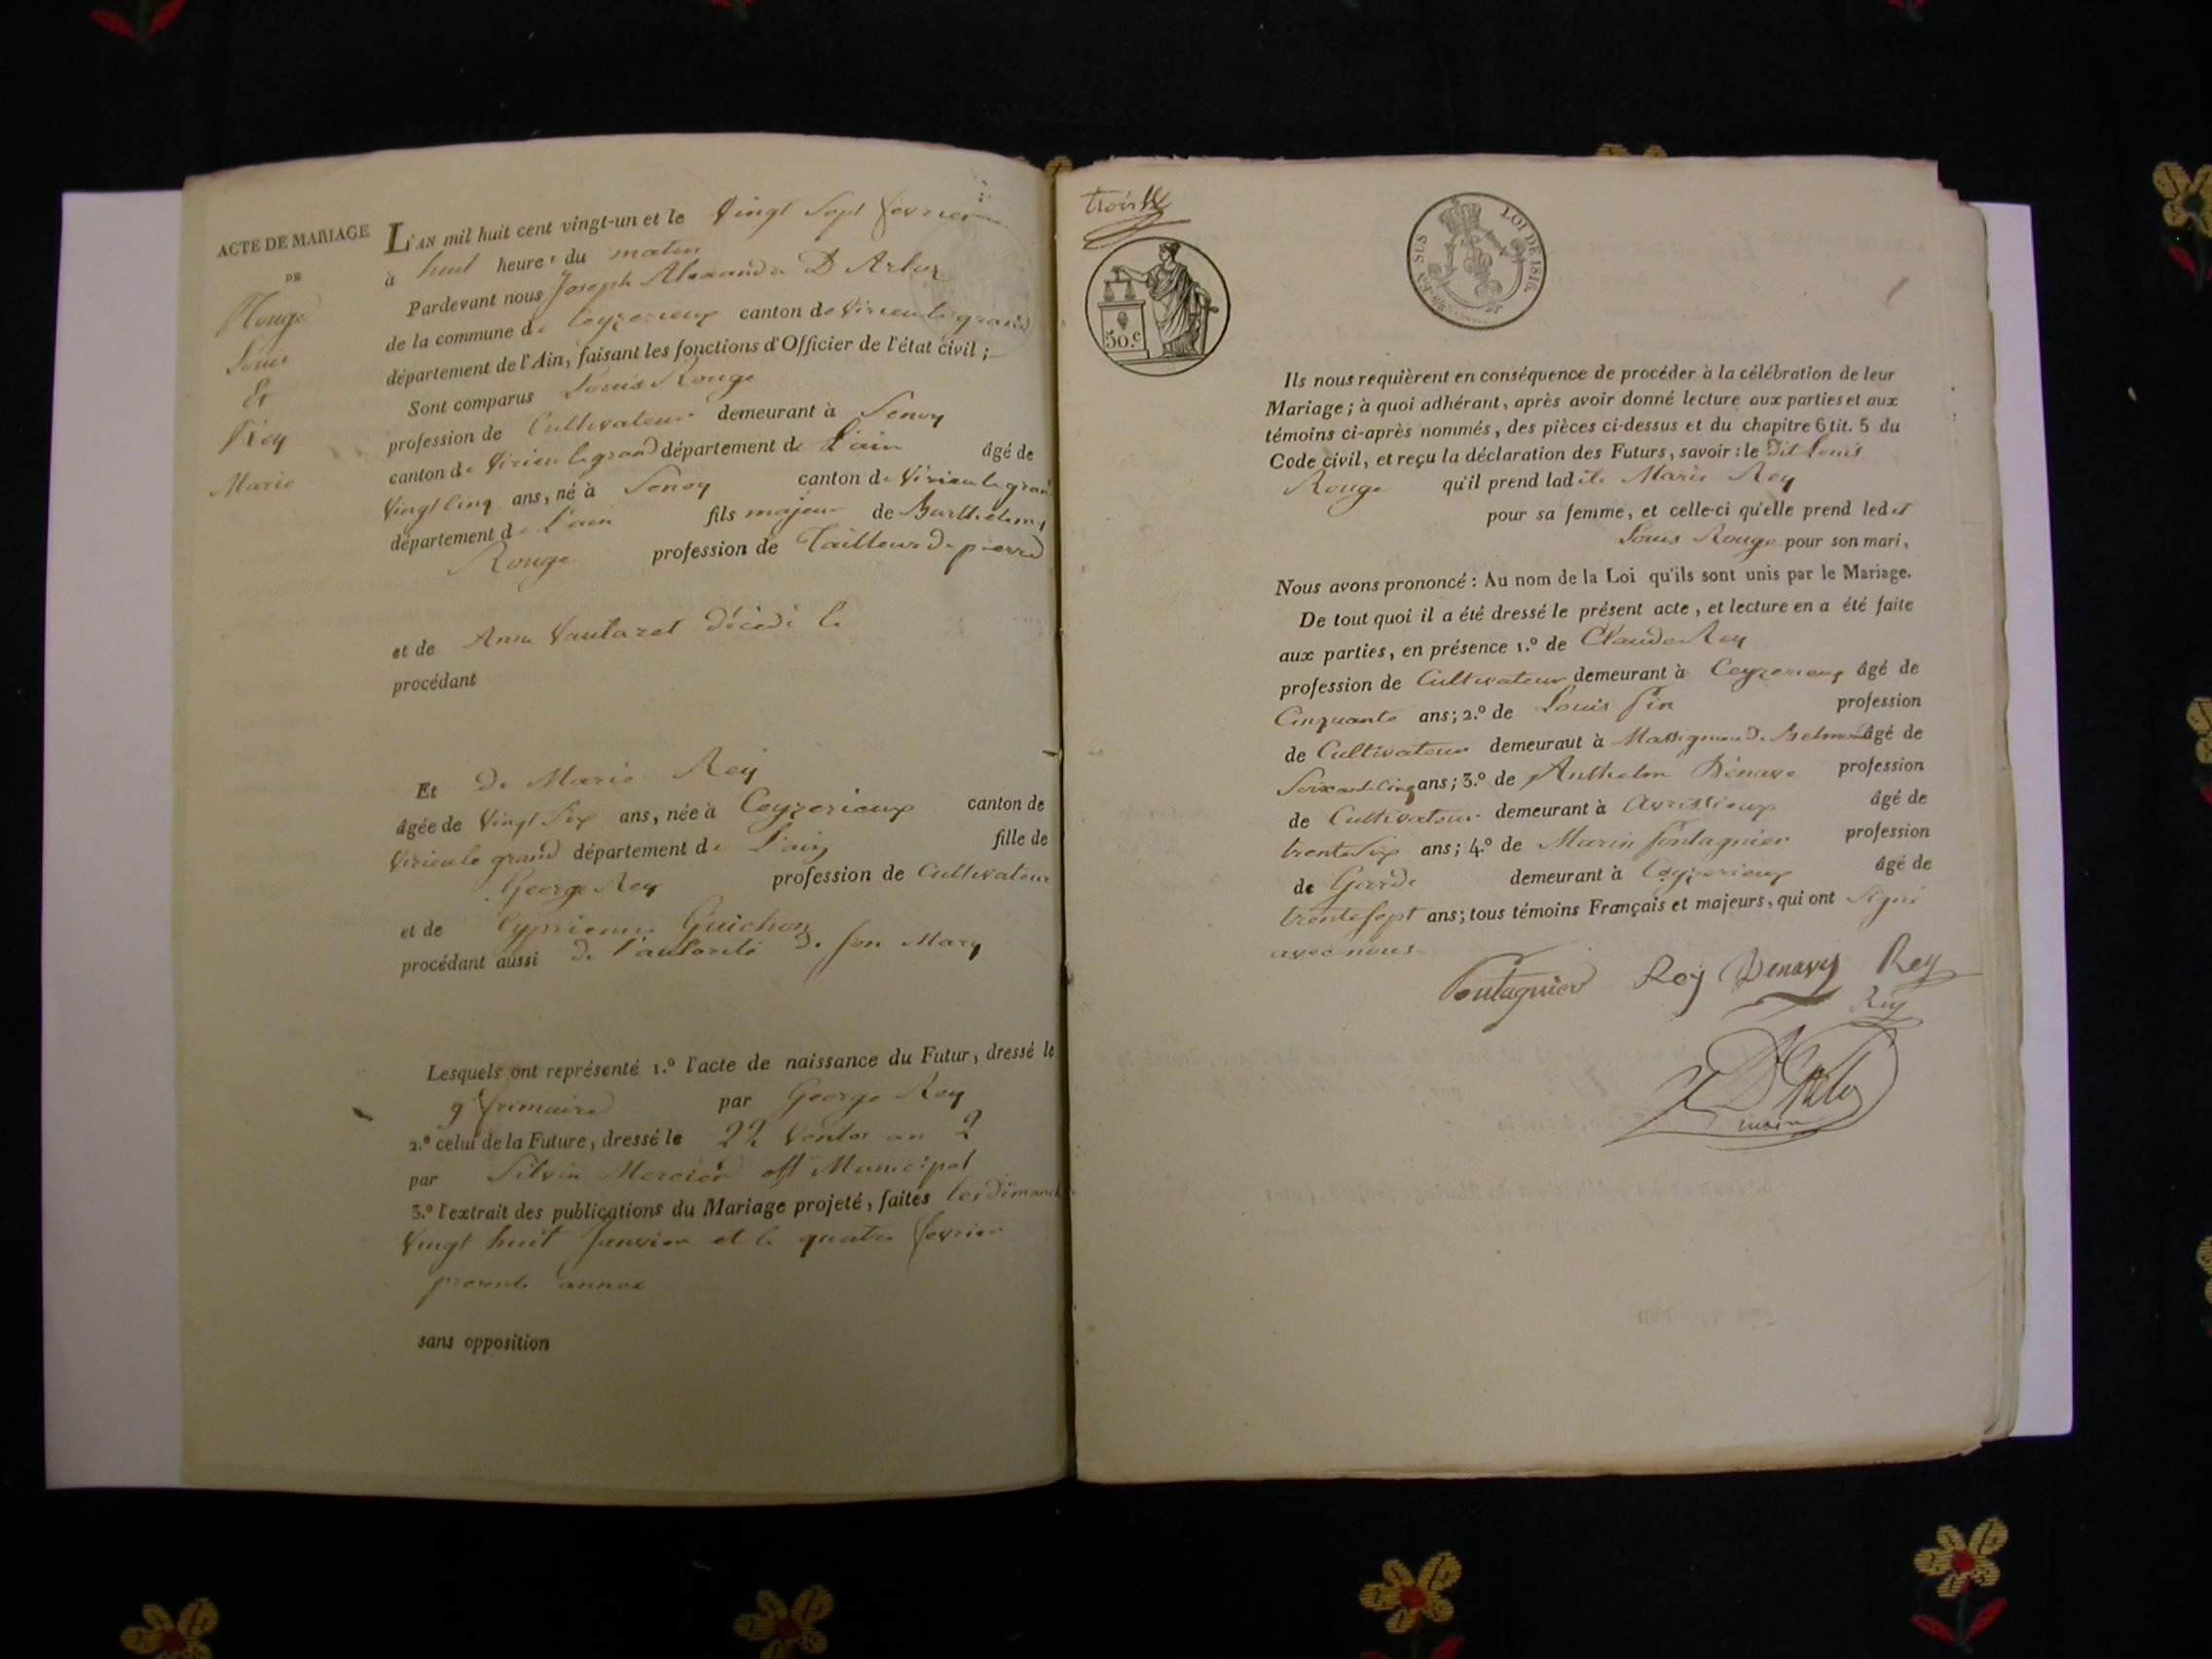 ACTE DE MARIAGE
DE
Rouge
Louis
Et
Rey
Marie
L'AN mil huit cent vingt-un et le Vingt Sept fevrier
à huit heures du matin
Pardevant nous Joseph Alexandre D Arloz
de la commune de Ceyzerieux canton de Virieu le grand
département de l'Ain, faisant les fonctions d'Officier de l'état civil;
Sont comparus Louis Rouge
profession de Cultivateur demeurant à Senoy
canton de Virieu le grand département de L'ain âgé de
Vingt Cinq ans, né à Senoy canton de Virieu le grand
département de L'ain fils majeur de Barthelemy
Rouge profession de Tailleur de pierre
et de Anne Vautaret décédé le
procédant
Et de Marie Rey
âgée de Vingt Six ans, née à Ceyzerieux canton de
Virieu le grand département de L'ain fille de
George Rey profession de Cultivateur
et de Cyprienne Guichon
procédant aussi de l'autorité de son Mary
Lesquels ont représenté 1.º l'acte de naissance du Futur, dressé le
9 frimaire par George Rey
2.º celui de la Future, dressé le 22 Ventos an 2
par Silvin Mercier off Municipal
3.º l'extrait des publications du Mariage projeté, faites les dimanche
Vingt huit Janvier et le quatre fevrier
presente annee
sans opposition
trois
50.c
EN SUS LOI DE 1816.
Ils nous requièrent en conséquence de procéder à la célébration de leur
Mariage; à quoi adhérant, après avoir donné lecture aux parties et aux
témoins ci-après nommés, des pièces ci-dessus et du chapitre 6 tit. 5 du
Code civil, et reçu la déclaration des Futurs, savoir: le dit Louis
Rouge qu'il prend ladite Marie Rey
pour sa femme, et celle-ci qu'elle prend ledit
Louis Rouge pour son mari,
Nous avons prononcé: Au nom de la Loi qu'ils sont unis par le Mariage.
De tout quoi il a été dressé le présent acte, et lecture en a été faite
aux parties, en présence 1.º de Claude Rey
profession de Cultivateur demeurant à Ceyzerieux âgé de
Cinquante ans; 2.º de Louis fin profession
de Cultivateur demeurant à Massignieu de Belmont âgé de
Soixante Cinq ans; 3.º de Anthelme Bénave profession
de Cultivateur demeurant à Avrissieux âgé de
trente Six ans; 4.º de Marin fontagnier profession
de Garde demeurant à Ceyzerieux âgé de
trente sept ans; tous témoins Français et majeurs, qui ont Signé
avec nous
Rey Rey
Rey